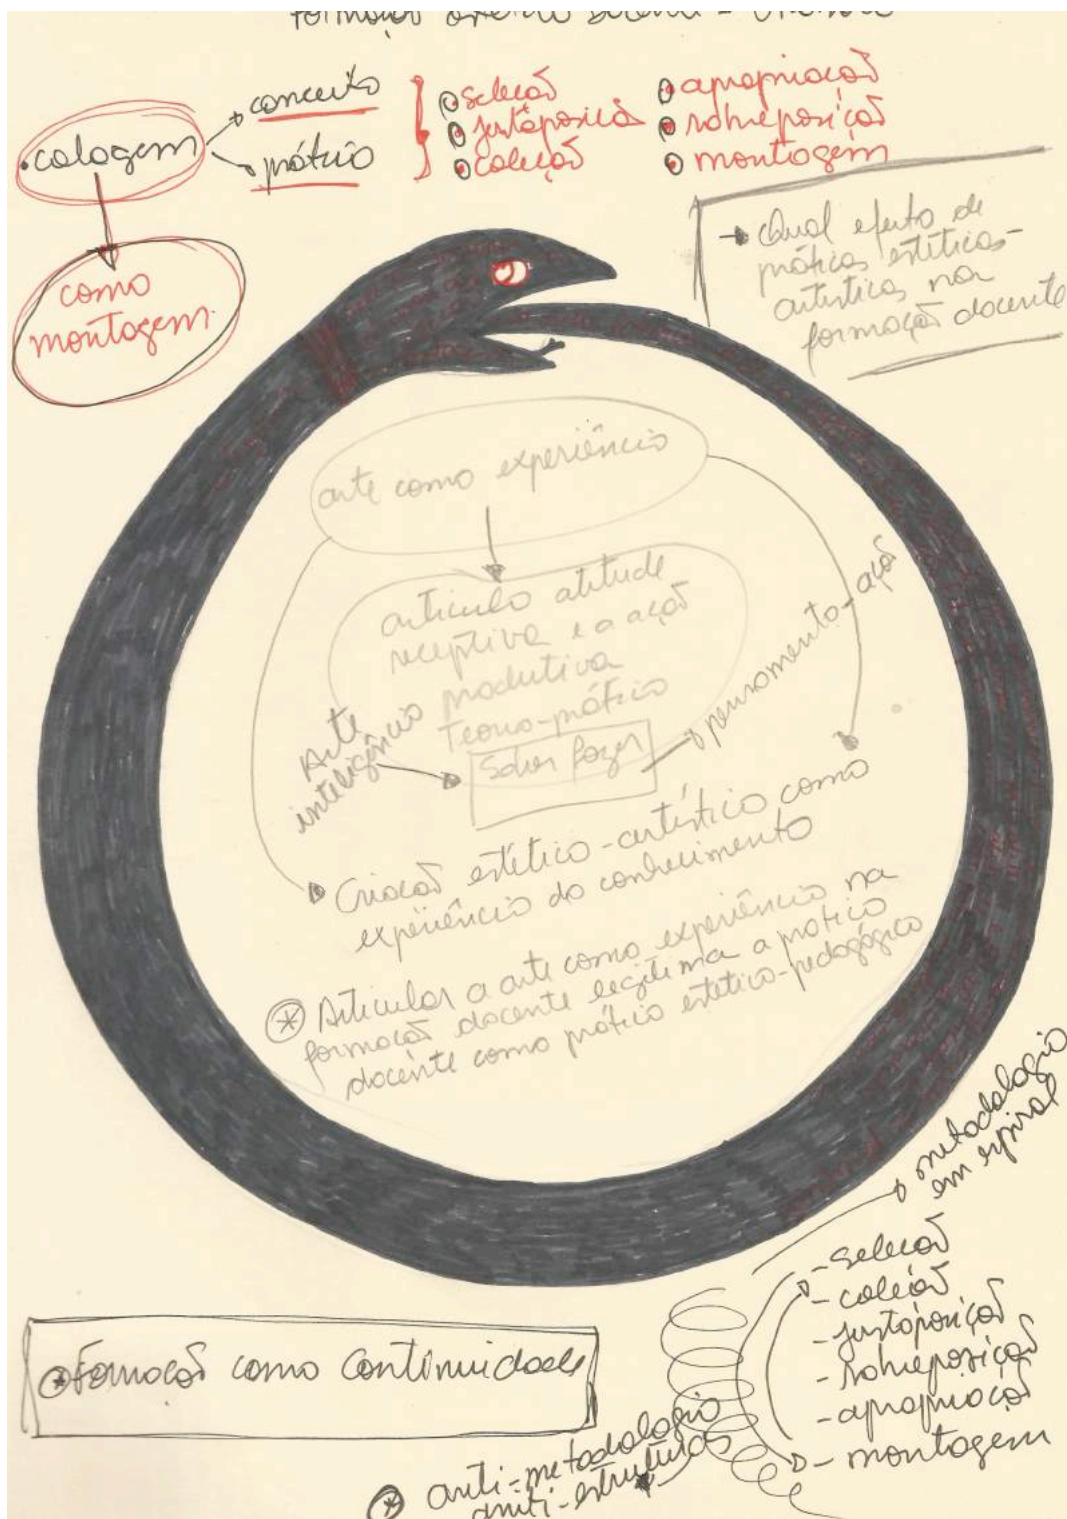 formação
• colagem
conceito
prática
• seleção
• justaposição
• coleção
• apropriação
• sobreposição
• montagem
como
montagem
Qual efeito de
práticas estéticas-
artísticas na
formação docente
arte como experiência
articula atitude
receptiva e a ação
produtiva
Teoria-prática
Saber fazer
Arte
inteligência
pensamento-ação
Criação estético-artística como
experiência do conhecimento
* Articular a arte como experiência na
formação docente legitima a prática
docente como prática estético-pedagógica
metodologia
em espiral
- Seleção
- coleção
- justaposição
- sobreposição
- apropriação
- montagem
* Formação como Continuidade
* anti-metodologia
anti-estruturas